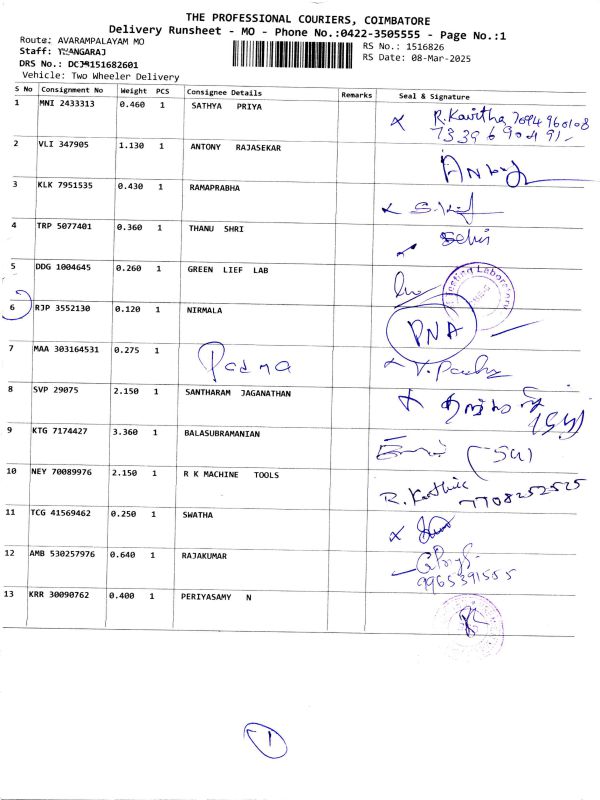 THE PROFESSIONAL COURIERS, COIMBATORE
Delivery Runsheet - MO - Phone No.:0422-3505555 - Page No.:1
Route: AVARAMPALAYAM MO
RS No.: 1516826
Staff:
RS Date: 08-Mar-2025
DRS No.:
Vehicle: Two Wheeler Delivery
S No Consignment No Weight PCS Consignee Details Remarks Seal & Signature
1 MNI 2433313 0.460 1 SATHYA PRIYA R. Kavitha 7694960108
7339690491-
2 VLI 347905 1.130 1 ANTONY RAJASEKAR
3 KLK 7951535 0.430 1 RAMAPRABHA
4 TRP 5077401 0.360 1 THANU SHRI
5 DDG 1004645 0.260 1 GREEN LIEF LAB
6 RJP 3552130 0.120 1 NIRMALA PNA
7 MAA 303164531 0.275 1 Padma
8 SVP 29075 2.150 1 SANTHARAM JAGANATHAN
9 KTG 7174427 3.360 1 BALASUBRAMANIAN
10 NEY 70089976 2.150 1 R K MACHINE TOOLS R. Karthik
7708252525
11 TCG 41569462 0.250 1 SWATHA
12 AMB 530257976 0.640 1 RAJAKUMAR
9965391555
13 KRR 30090762 0.400 1 PERIYASAMY N
1